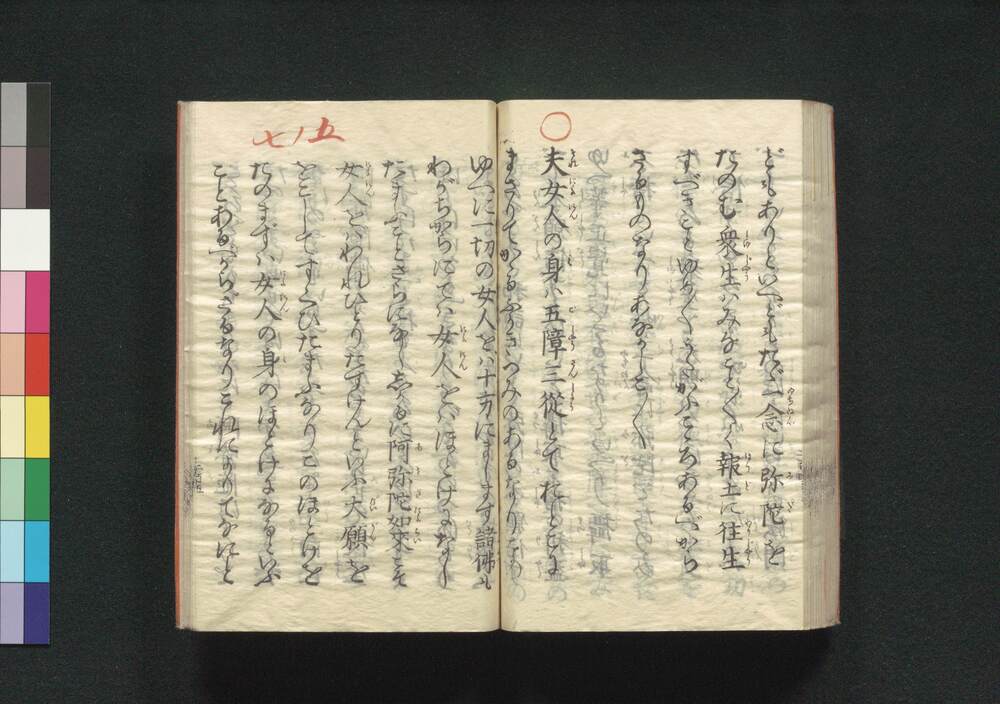 どもありといへどもたゞ一念に弥陀を
たのむ衆生ハみなこと〴〵く報土に往生
すべきことゆめ〳〵うたがふこゝろあるべから
ざるものなりあなかしこ〳〵
○
夫女人の身ハ五障三從とておとこに
まさりてかゝるふかきつみのあるなりこの
五ノ七
ゆへに一切の女人をバ十方にまします諸佛も
わがちからにてハ女人をバほとけになし
たまふことさらになし志かるに阿弥陀如来こそ
女人をバわれひとりたすけんといふ大願を
をこしてすくひたまふなりこのほとけを
たのまずハ女人の身のほとけになるといふ
ことあるべからざるなりこれによりてなにと